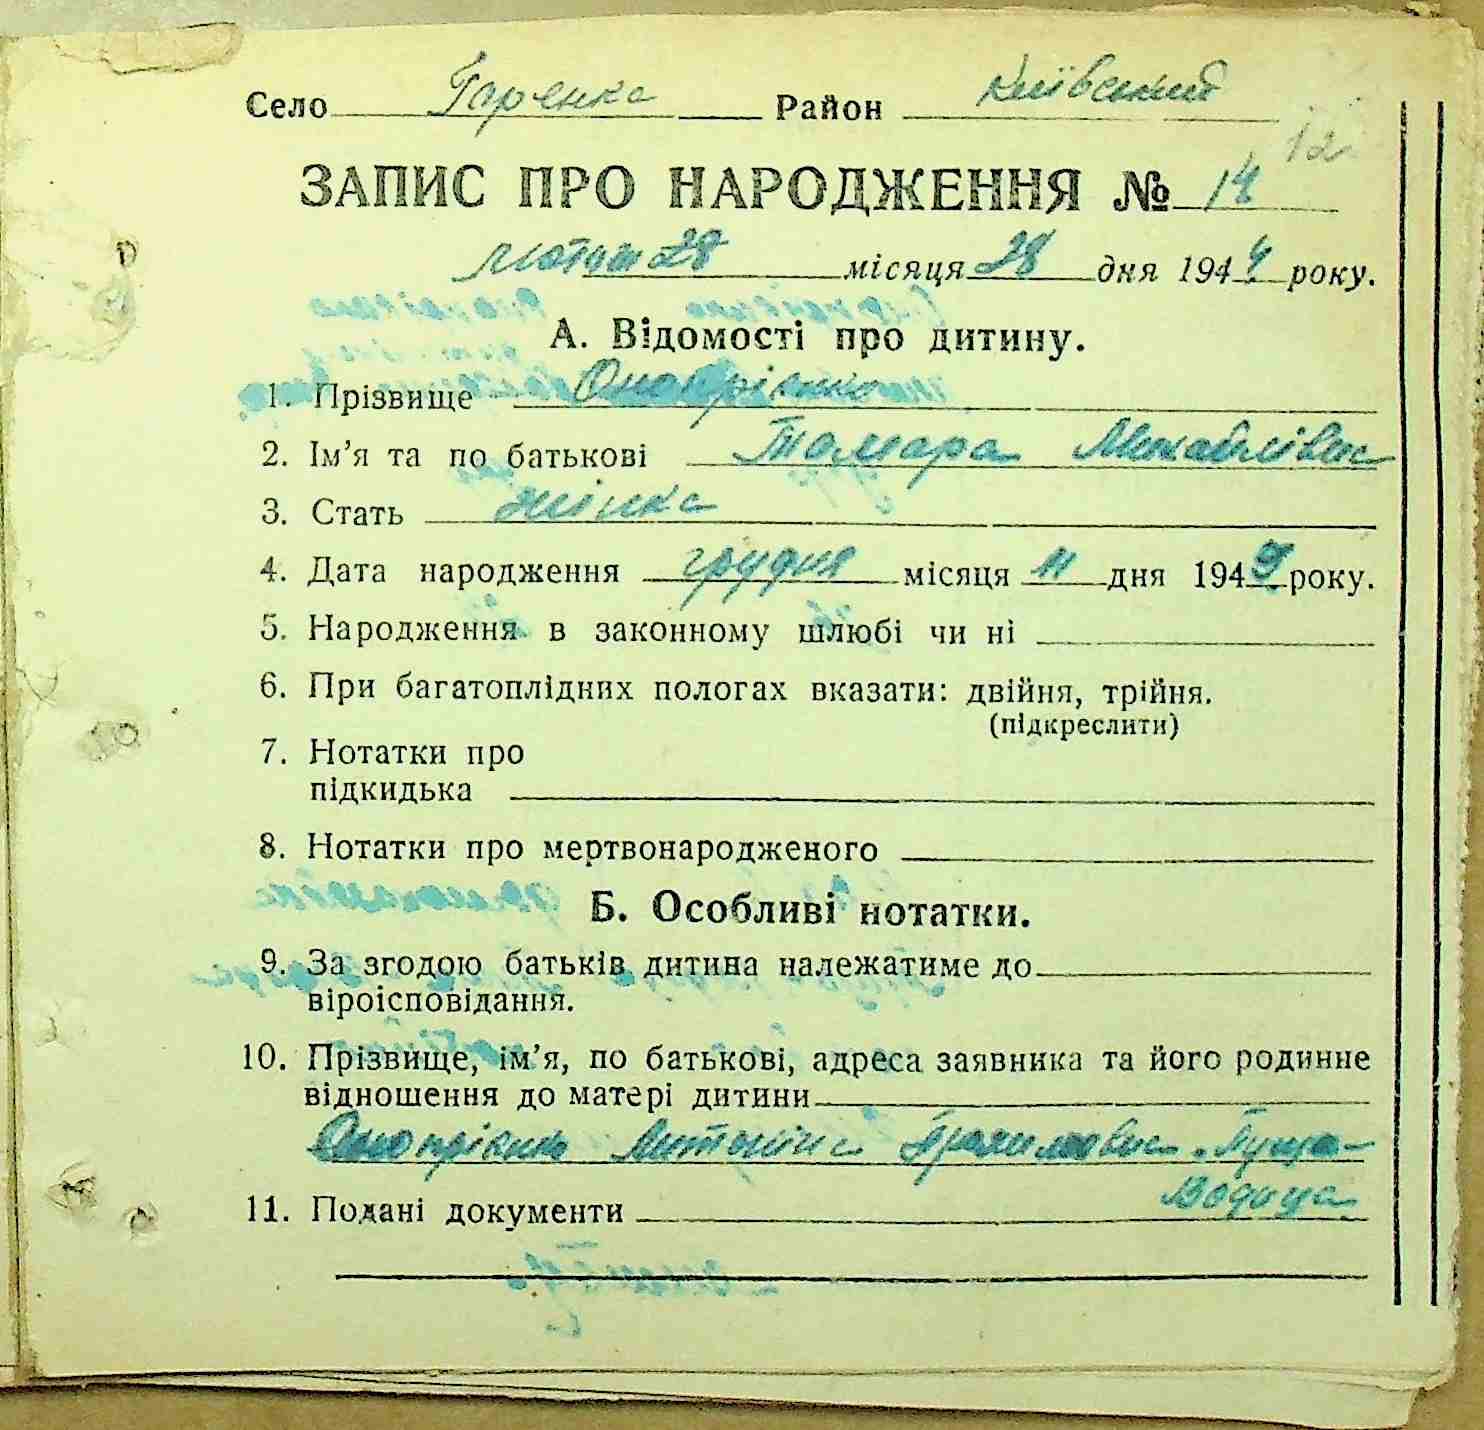 Село Горенка Район Київський
12
ЗАПИС ПРО НАРОДЖЕННЯ № 14
лютий 28 місяця 28 дня 1944 року.
А. Відомості про дитину.
1. Прізвище Онопрієнко
2. Ім’я та по батькові Тамара Михайлівна
3. Стать жінка
4. Дата народження грудня місяця 11 дня 1949 року.
5. Народження в законному шлюбі чи ні
6. При багатоплідних пологах вказати: двійня, трійня.
(підкреслити)
7. Нотатки про
підкидька
8. Нотатки про мертвонародженого
Б. Особливі нотатки.
9. За згодою батьків дитина належатиме до
віроісповідання.
10. Прізвище, ім’я, по батькові, адреса заявника та його родинне
відношення до матері дитини
Онопрієнко Антоніна Пуща-
Водица
11. Подані документи